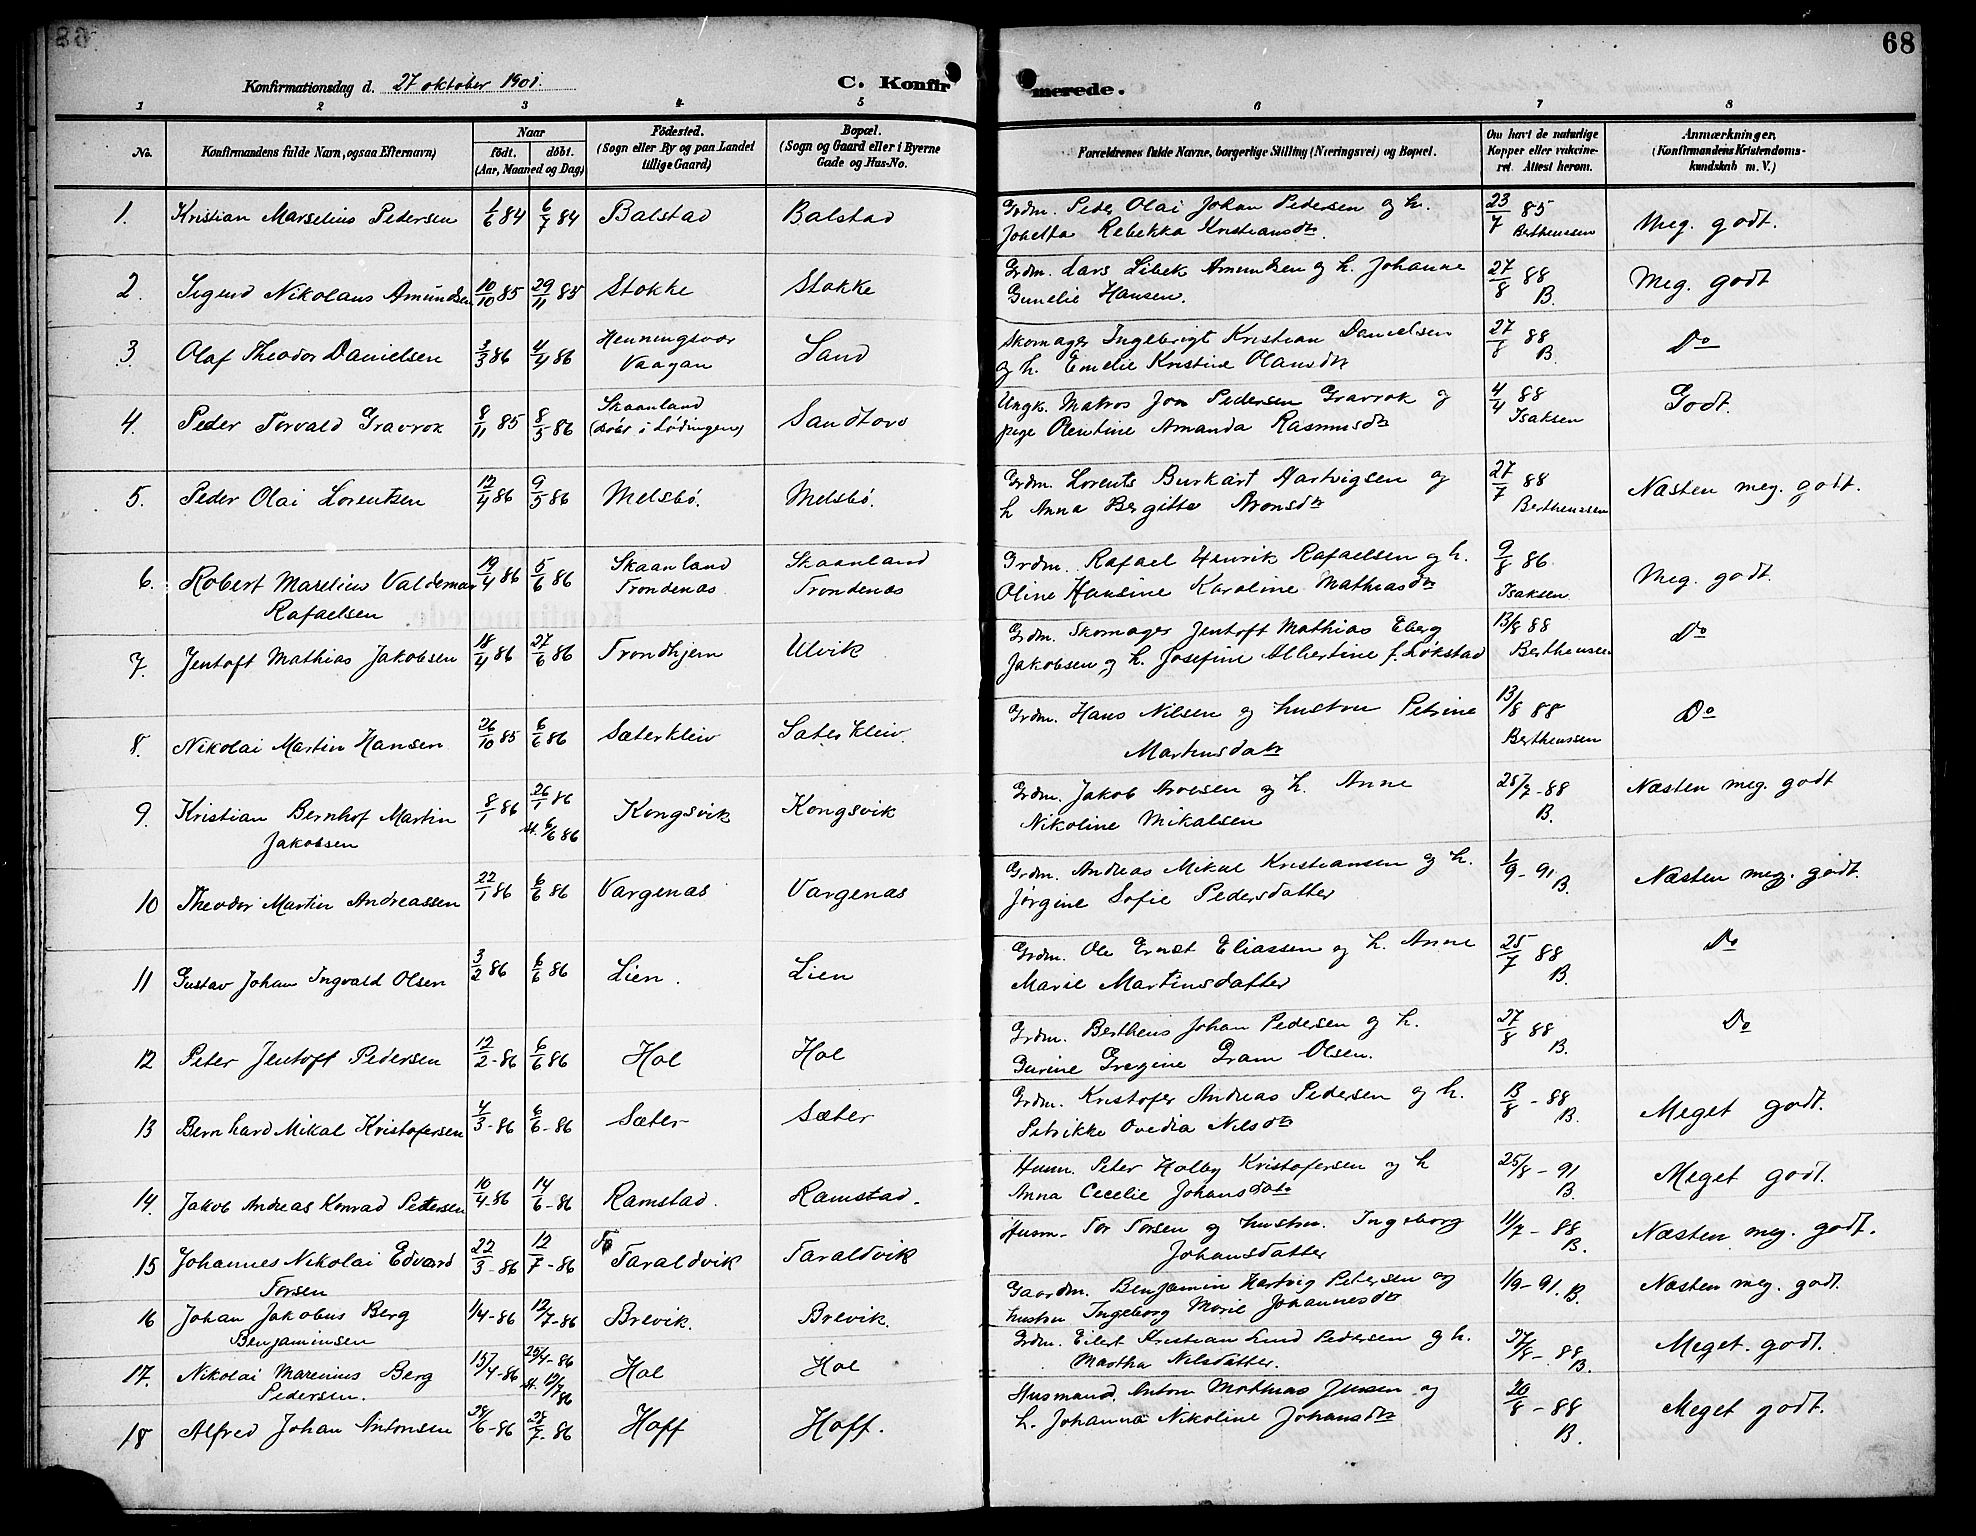 68
Konfirmationsdag d. 27 oktober 1901.
C. Konfirmerede.
1 2 3 4 5 6 7 8
No.
Konfirmandens fulde Navn, ogsaa Efternavn)
Naar
födt. döbt.
(Aar, Maaned og Dag)
Födested.
(Sogn eller By og paa Landet
tillige Gaard)
Bopæl.
(Sogn og Gaard eller i Byerne
Gade og Hus-No.
Forældrenes fulde Navne, borgerlige Stilling (Næringsvei) og Bopæl.
Om havt de naturlige
Kopper eller vakcine-
ret. Attest herom.
Anmærkninger,
(Konfirmandens Kristendoms-
kundskab m. V.)
1. Kristian Marselius Pedersen 1/6 84 6/7 84 Balstad Balstad Grdm. Peder Olai Johan Pedersen og h. 23/7 85 Meg. godt.
Rebekka Kristiansdtr. Bertheussen
2. Sigurd Nikolaus Amundsen 10/10 85 29/11 85 Stokke Stokke Grdm. Lars Libek Amundsen og h. Johanne 27/8 88 Meg. godt
Gunelie Hansen. B.
3. Olaf Theodor Danielsen 3/3 86 4/4 86 Henningsvær Sand Skomager Ingebrigt Kristian Danielsen 27/8 88 Do
Vaagan og h. Emelie Kristine Olausdtr B.
4. Peder Torvald Gravrok 8/11 85 8/5 86 Skaanland Sandtorv Ungk. Matros Jon Pedersen Gravrok og 4/4 88 Godt.
(döbt i Lødingen) pige Olentine Amanda Rasmusdtr Isaksen
5. Peder Olai Lorentsen 12/4 86 9/5 86 Melsbö. Melsbö. Grdm. Lorents Burkart Hartvigsen og 27/7 88 Næsten meg. godt.
h Anna Bergitte Aronsdtr Bertheussen
6. Robert Marelius Valdemar 19/4 86 5/6 86 Skaanland Skaanland Grdm. Rafael Henrik Rafaelsen og h. 9/8 86. Meg. godt.
Rafaelsen Trondenæs Trondenæs Oline Hansine Karoline Mathiasdtr Isaksen
7. Jentoft Mathias Jakobsen 18/4 86 27/6 86 Trondhjem Ulvik Grdm. Skomager Jentoft Mathias Eberg 13/8 88 Do
Jakobsen og h. Josefine Albertine f. Løkstad Bertheussen
8. Nikolai Martin Hansen 26/10 85 6/6 86 Sæterkleiv Sæterkleiv. Grdm. Hans Nilsen og hustru Petrine 13/8 88 Do
Martinsdatr Bertheussen
9. Kristian Bernhof Martin 8/1 86 26/1 86 Kongsvik Kongsvik Grdm. Jakob Aroesen og h. Anne 25/7-88 Næsten meg. godt
Jakobsen st. 6/6 86 Nikoline Mikalsen B.
10 Theodor Martin Andreassen 22/1 86 6/6 86 Vargenæs Vargenæs Grdm. Andreas Mikal Kristiansen og h. 1/9-91 Næsten meg. godt.
Jørgine Sofie Pedersdatter B.
11 Gustav Johan Ingvald Olsen 3/2 86 6/6 86 Lien. Lien Grdm. Ole Ernst Eliassen og h. Anne 25/7 88 Do
Marie Martinsdatter B.
12 Peter Jentoft Pedersen 12/2-86 6/6 86 Hol Hol Grdm. Bertheus Johan Pedersen og h. 27/8 88 Do
Gurine Gregine Gram Olsen. B.
13 Bernhard Mikal Kristofersen 4/3-86 6/6-86 Sæter Sæter Grdm. Kristofer Andreas Pedersen og h. 13/8-88 Meget godt.
Petrikke Ovedia Nilsdtr B.
14. Jakob Andreas Konrad Pedersen 10/4-86 14/6-86 Ramstad. Ramstad. Husm. Peter Holby Kristofersen og h 25/8-91 Meget godt.
Anna Cecelie Johansdatr B.
15 Johannes Nikolai Edvard 22/3-86 12/7-86 Taraldvik Taraldvik Husm. Tor Torsen og hustru. Ingeborg 11/7-88 Næsten meg. godt.
Torsen Johansdatter B.
16 Johan Jakobus Berg 1/4-86 12/7-86 Brevik. Brevik. Gaardm. Benjamin Hartvig Petersen og 1/9-91. B. Næsten meg. godt.
Benjaminsen hustru Ingeborg Marie Johannesdtr
17. Nikolai Marenius Berg 15/4-86 25/4-86 Hol Hol Grdm. Eilert Kristian Lund Pedersen og h. 27/8-88 Meget. godt.
Pedersen. st. 12/7 86 Martha Nilsdatter. B.
18 Alfred Johan Antonsen 28/6-86 28/7-86 Hoff Hoff. Husmand. Anton Mathias Jensen og 20/8-88 Meget godt.
h. Johanna Nikoline Johansdtr B.